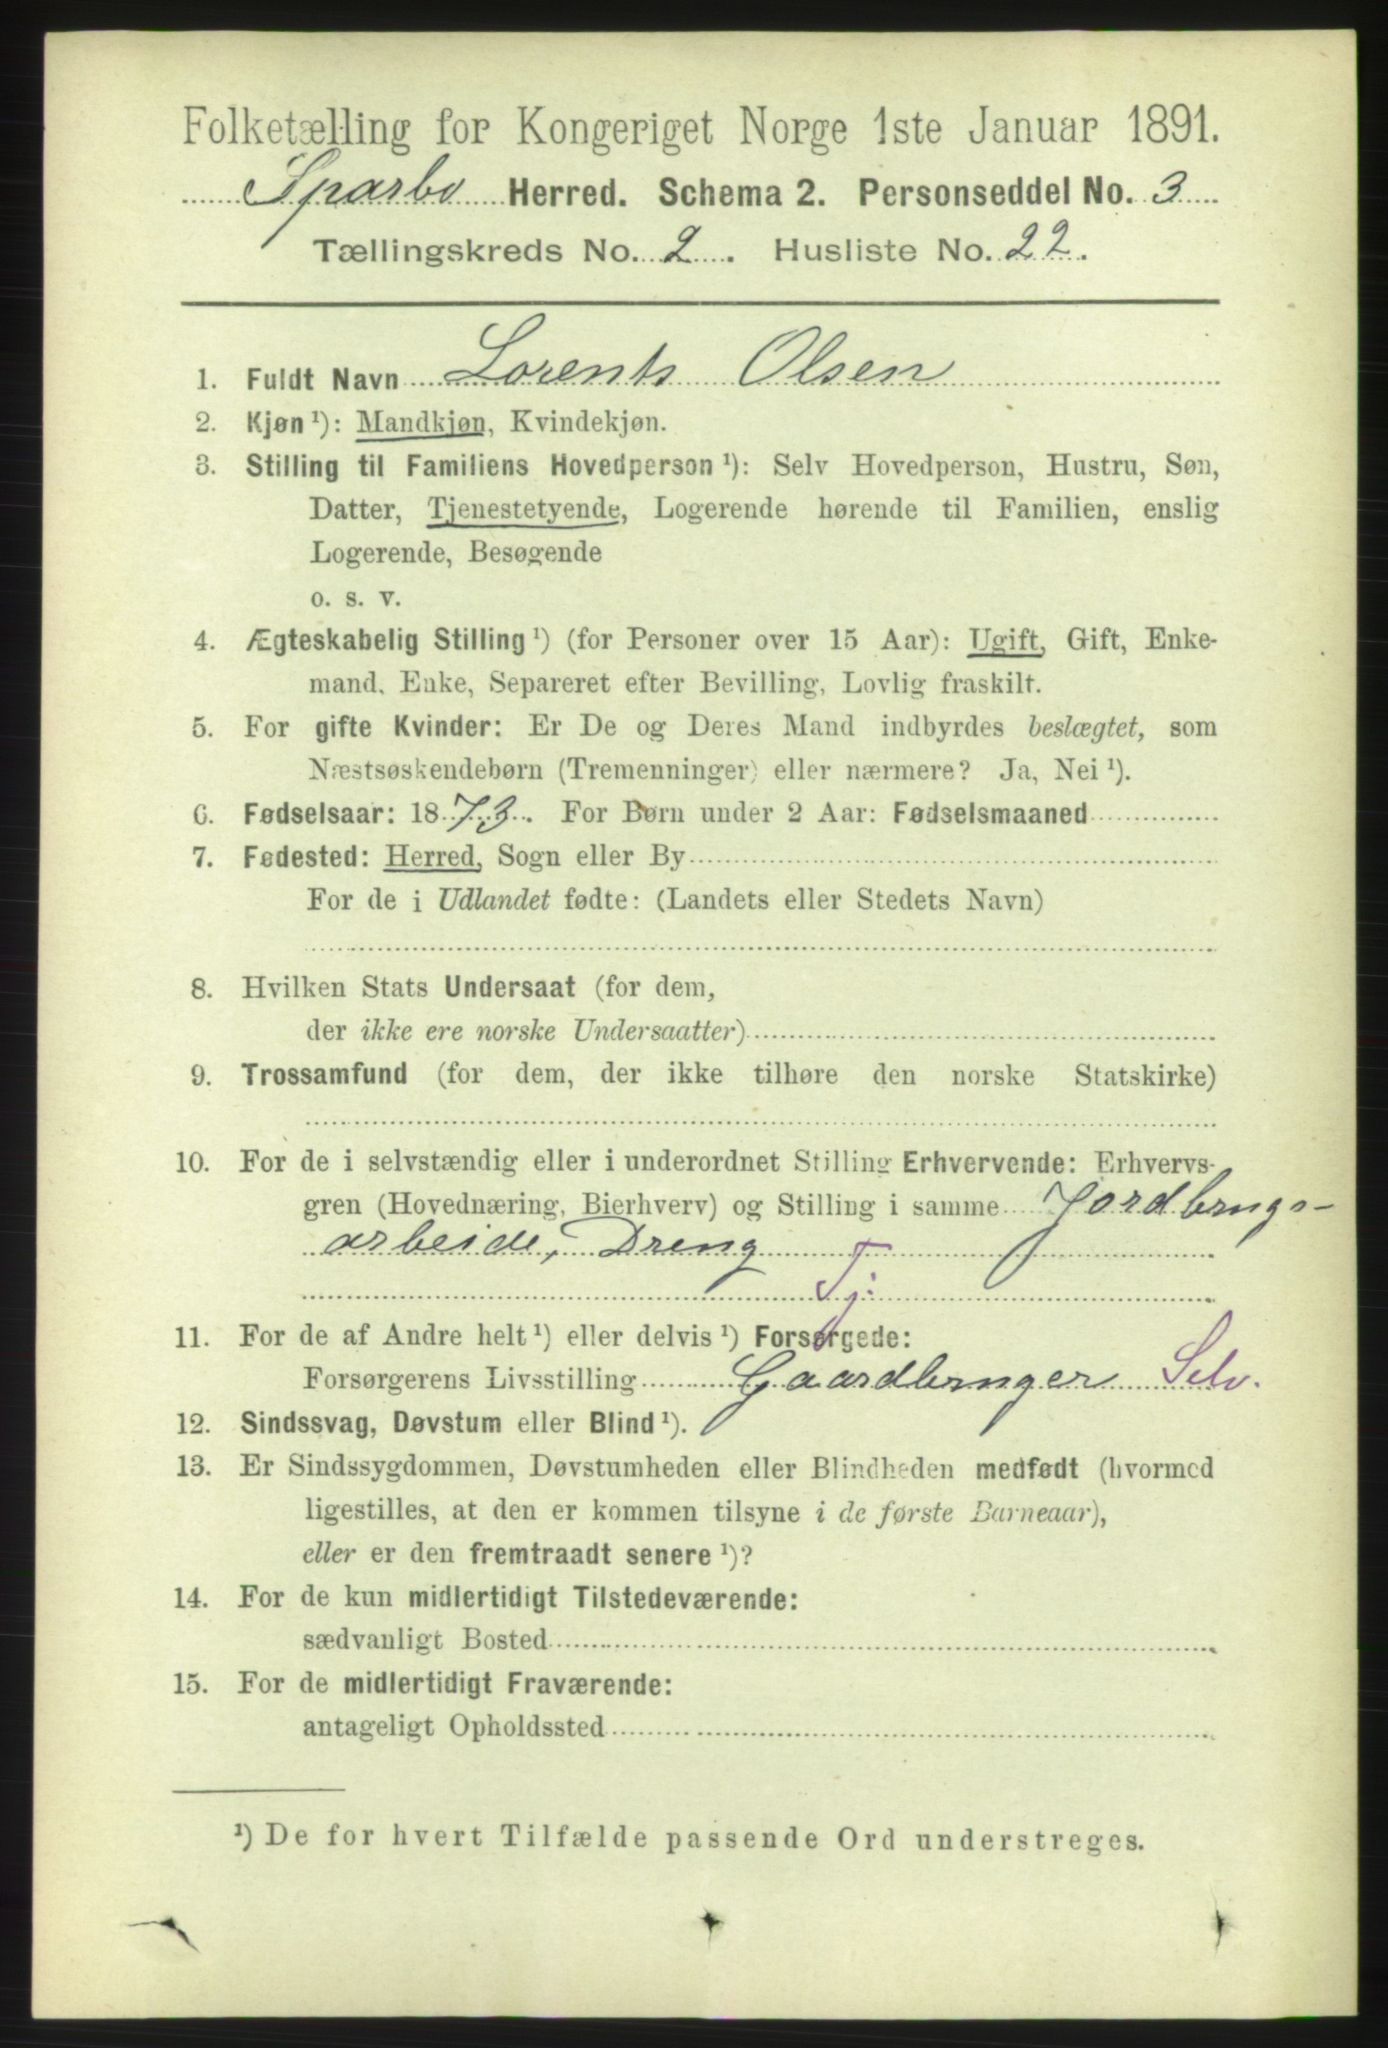 Folketælling for Kongeriget Norge 1ste Januar 1891.
Sparbo Herred. Schema 2. Personseddel No. 3
Tællingskreds No. 2. Husliste No. 22.
1. Fuldt Navn Lorents Olsen
2. Kjøn ¹): Mandkjøn, Kvindekjøn.
3. Stilling til Familiens Hovedperson ¹): Selv Hovedperson, Hustru, Søn,
Datter, Tjenestetyende, Logerende hørende til Familien, enslig
Logerende, Besøgende
o. s. v.
4. Ægteskabelig Stilling ¹) (for Personer over 15 Aar): Ugift, Gift, Enke-
mand, Enke, Separeret efter Bevilling, Lovlig fraskilt.
5. For gifte Kvinder: Er De og Deres Mand indbyrdes beslægtet, som
Næstsøskendebørn (Tremenninger) eller nærmere? Ja, Nei ¹).
6. Fødselsaar: 1873. For Børn under 2 Aar: Fødselsmaaned
7. Fødested: Herred, Sogn eller By
For de i Udlandet fødte: (Landets eller Stedets Navn)
8. Hvilken Stats Undersaat (for dem,
der ikke ere norske Undersaatter)
9. Trossamfund (for dem, der ikke tilhøre den norske Statskirke)
10. For de i selvstændig eller i underordnet Stilling Erhvervende: Erhvervs-
gren (Hovednæring, Bierhverv) og Stilling i samme Jordbrugs-
arbeide, Dreng
Tj:
11. For de af Andre helt ¹) eller delvis ¹) Forsørgede:
Forsørgerens Livsstilling Gaardbruger Selv.
12. Sindssvag, Døvstum eller Blind ¹).
13. Er Sindssygdommen, Døvstumheden eller Blindheden medfødt (hvormed
ligestilles, at den er kommen tilsyne i de første Barneaar),
eller er den fremtraadt senere ¹)?
14. For de kun midlertidigt Tilstedeværende:
sædvanligt Bosted
15. For de midlertidigt Fraværende:
antageligt Opholdssted
¹) De for hvert Tilfælde passende Ord understreges.